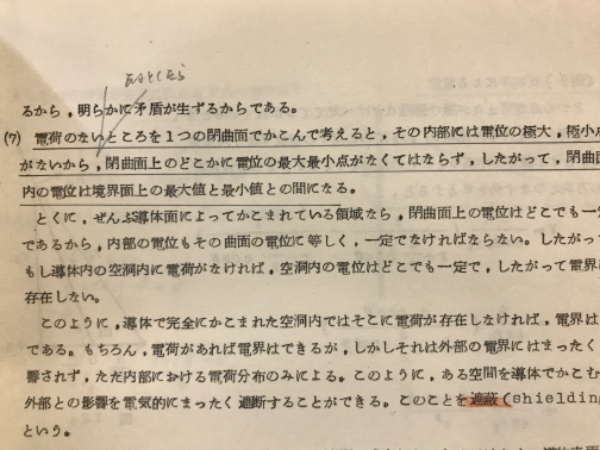 るから，明らかに矛盾が生ずるからである。
(7) 電荷のないところを１つの閉曲面でかこんで考えると，その内部には電位の極大，極小点
がないから，閉曲面上のどこかに電位の最大最小点がなくてはならず，したがって，閉曲面
内の電位は境界面上の最大値と最小値との間になる。
とくに，ぜんぶ導体面によってかこまれている領域なら，閉曲面上の電位はどこでも一定
であるから，内部の電位もその曲面の電位に等しく，一定でなければならない。したがって
もし導体内の空洞内に電荷がなければ，空洞内の電位はどこでも一定で，したがって電界は
存在しない。
このように，導体で完全にかこまれた空洞内ではそこに電荷が存在しなければ，電界は
である。もちろん，電荷があれば電界はできるが，しかしそれは外部の電界にはまったく
響されず，ただ内部における電荷分布のみによる。このように，ある空間を導体でかこむ
外部との影響を電気的にまったく遮断することができる。このことを遮蔽（shielding
という。